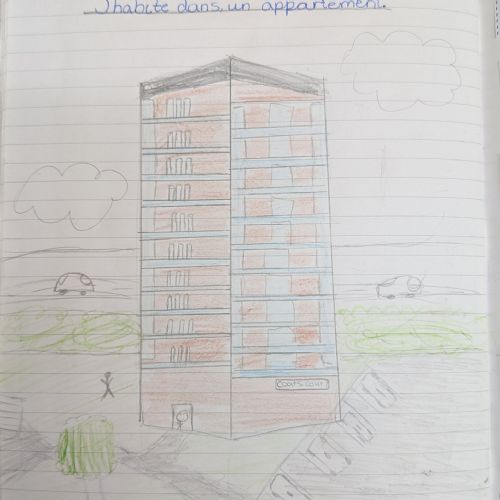 J'habite dans un appartement.
Coats court